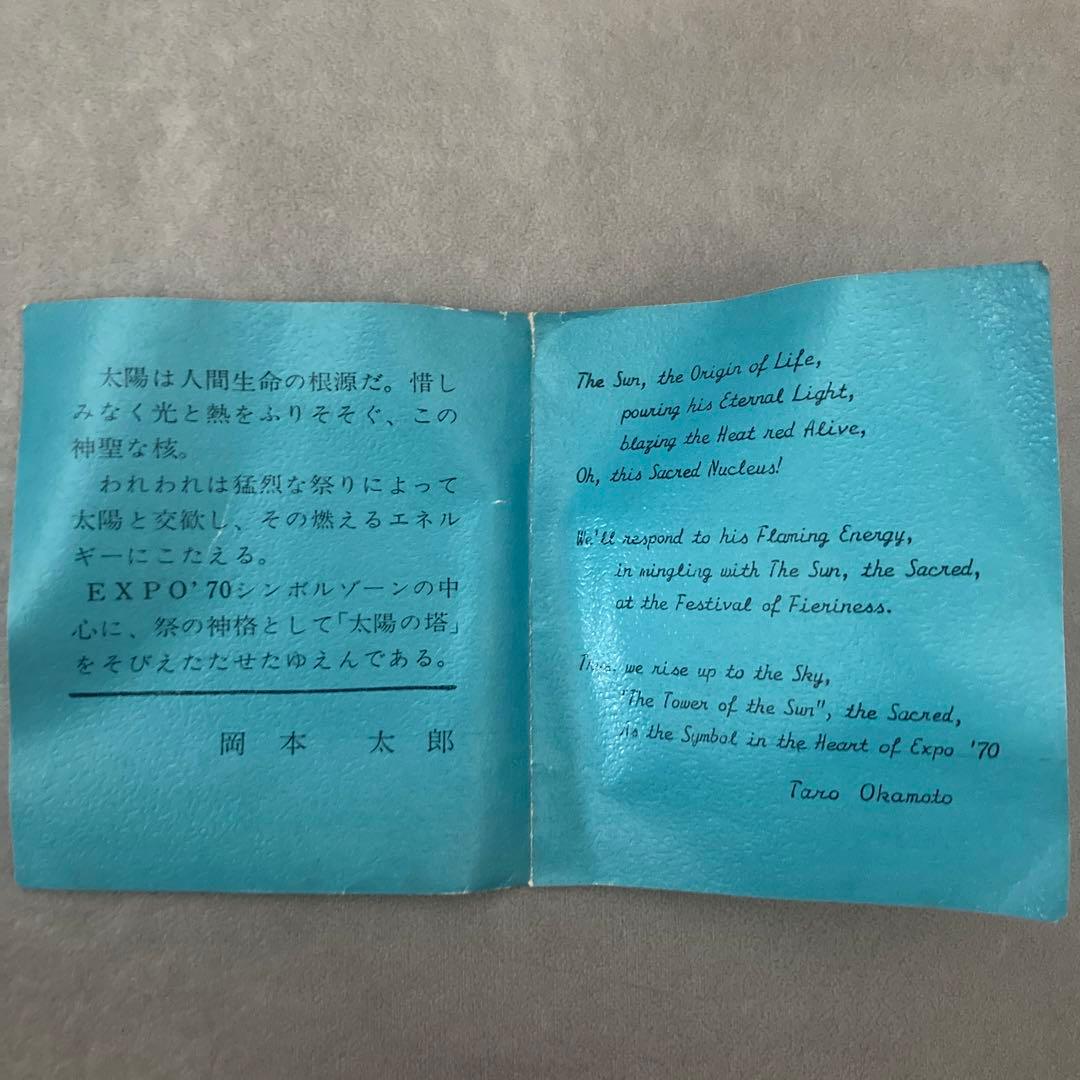 太陽は人間生命の根源だ。惜し
みなく光と熱をふりそそぐ、この
神聖な核。
われわれは猛烈な祭りによって
太陽と交歓し、その燃えるエネル
ギーにこたえる。
EXPO'70シンボルゾーンの中
心に、祭の神格として「太陽の塔」
をそびえたたせたゆえんである。
岡本 太郎
The Sun, the Origin of Life,
pouring his Eternal Light,
blazing the Heat red Alive,
Oh, this Sacred Nucleus!
We'll respond to his Flaming Energy,
in mingling with The Sun, the Sacred,
at the Festival of Fieriness.
we rise up to the Sky,
"The Tower of the Sun", the Sacred,
As the Symbol in the Heart of Expo '70
Taro Okamoto